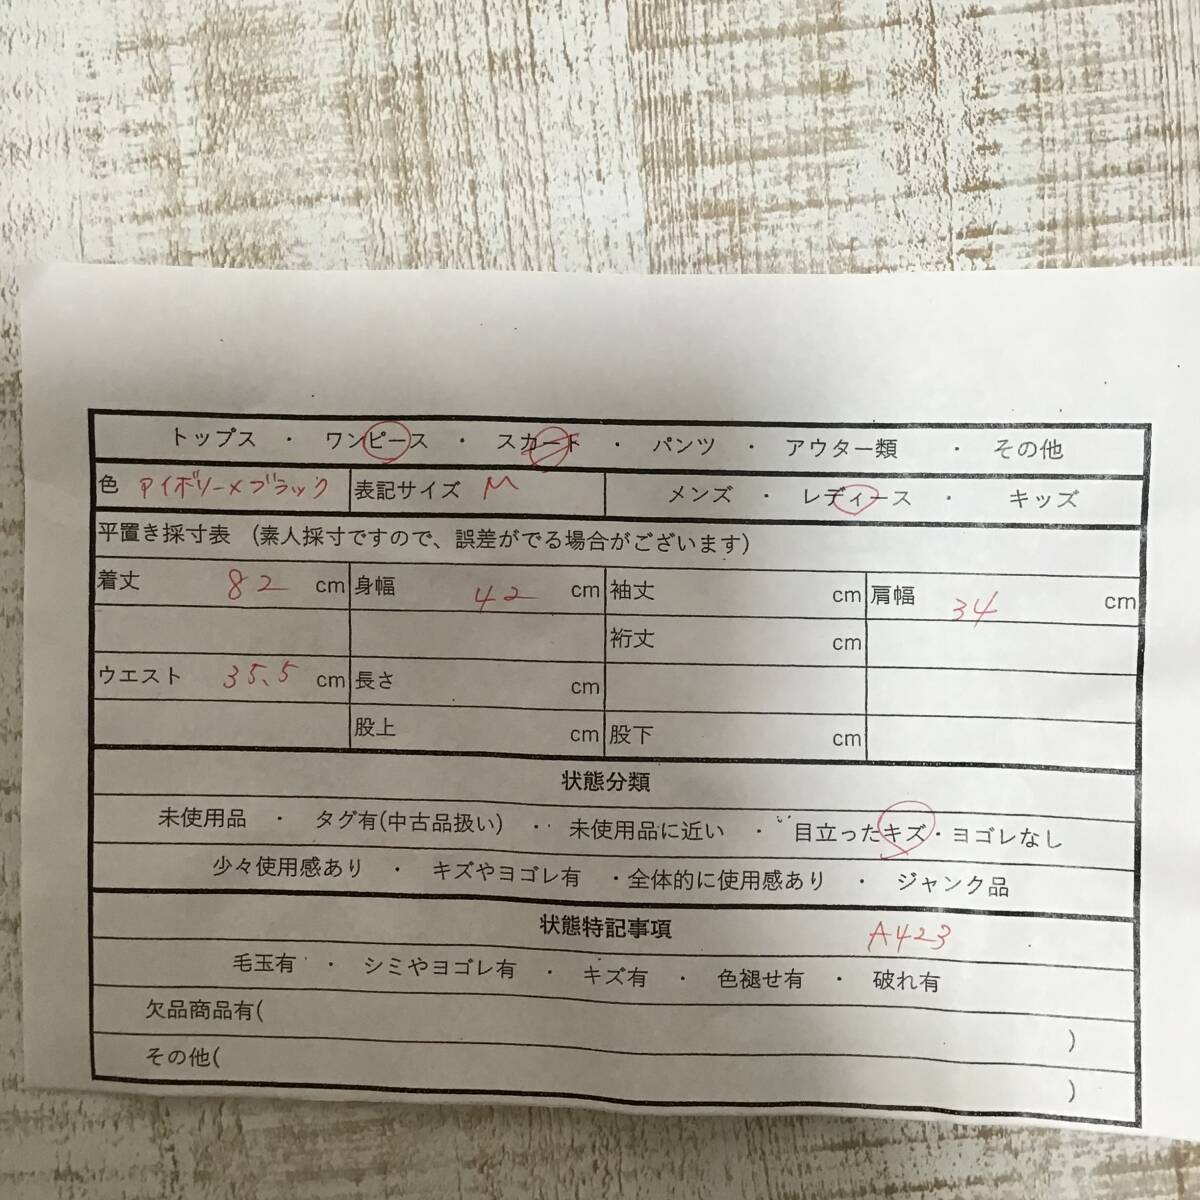 トップス ・ ワンピース ・ スカート ・ パンツ ・ アウター類 ・ その他
色 アイボリー×ブラック 表記サイズ M メンズ ・ レディース ・ キッズ
平置き採寸表 (素人採寸ですので、誤差がでる場合がございます)
着丈 82 cm 身幅 42 cm 袖丈 cm 肩幅 34 cm
裄丈 cm
ウエスト 35.5 cm 長さ cm
股上 cm 股下 cm
状態分類
未使用品 ・ タグ有(中古品扱い) ・・ 未使用品に近い ・ 目立ったキズ・ヨゴレなし
少々使用感あり ・ キズやヨゴレ有 ・全体的に使用感あり ・ ジャンク品
状態特記事項 A423
毛玉有 ・ シミやヨゴレ有 ・ キズ有 ・ 色褪せ有 ・ 破れ有
欠品商品有( )
その他( )